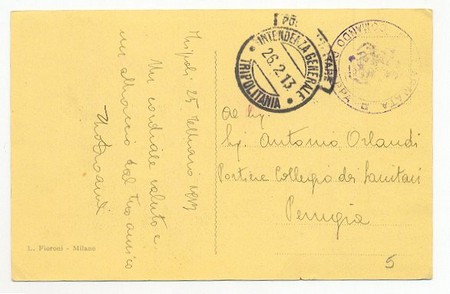 Tripoli 25 Febbraio 1913
Un cordiale saluto e
un abbraccio dal tuo amico
INTENDENZA GENERALE
26.2.13
TRIPOLITANIA
COMANDO
Al Sig.
Sig. Antonio Orlandi
Portiere Collegio dei Sanitari
Perugia
5
L. Fieroni - Milano